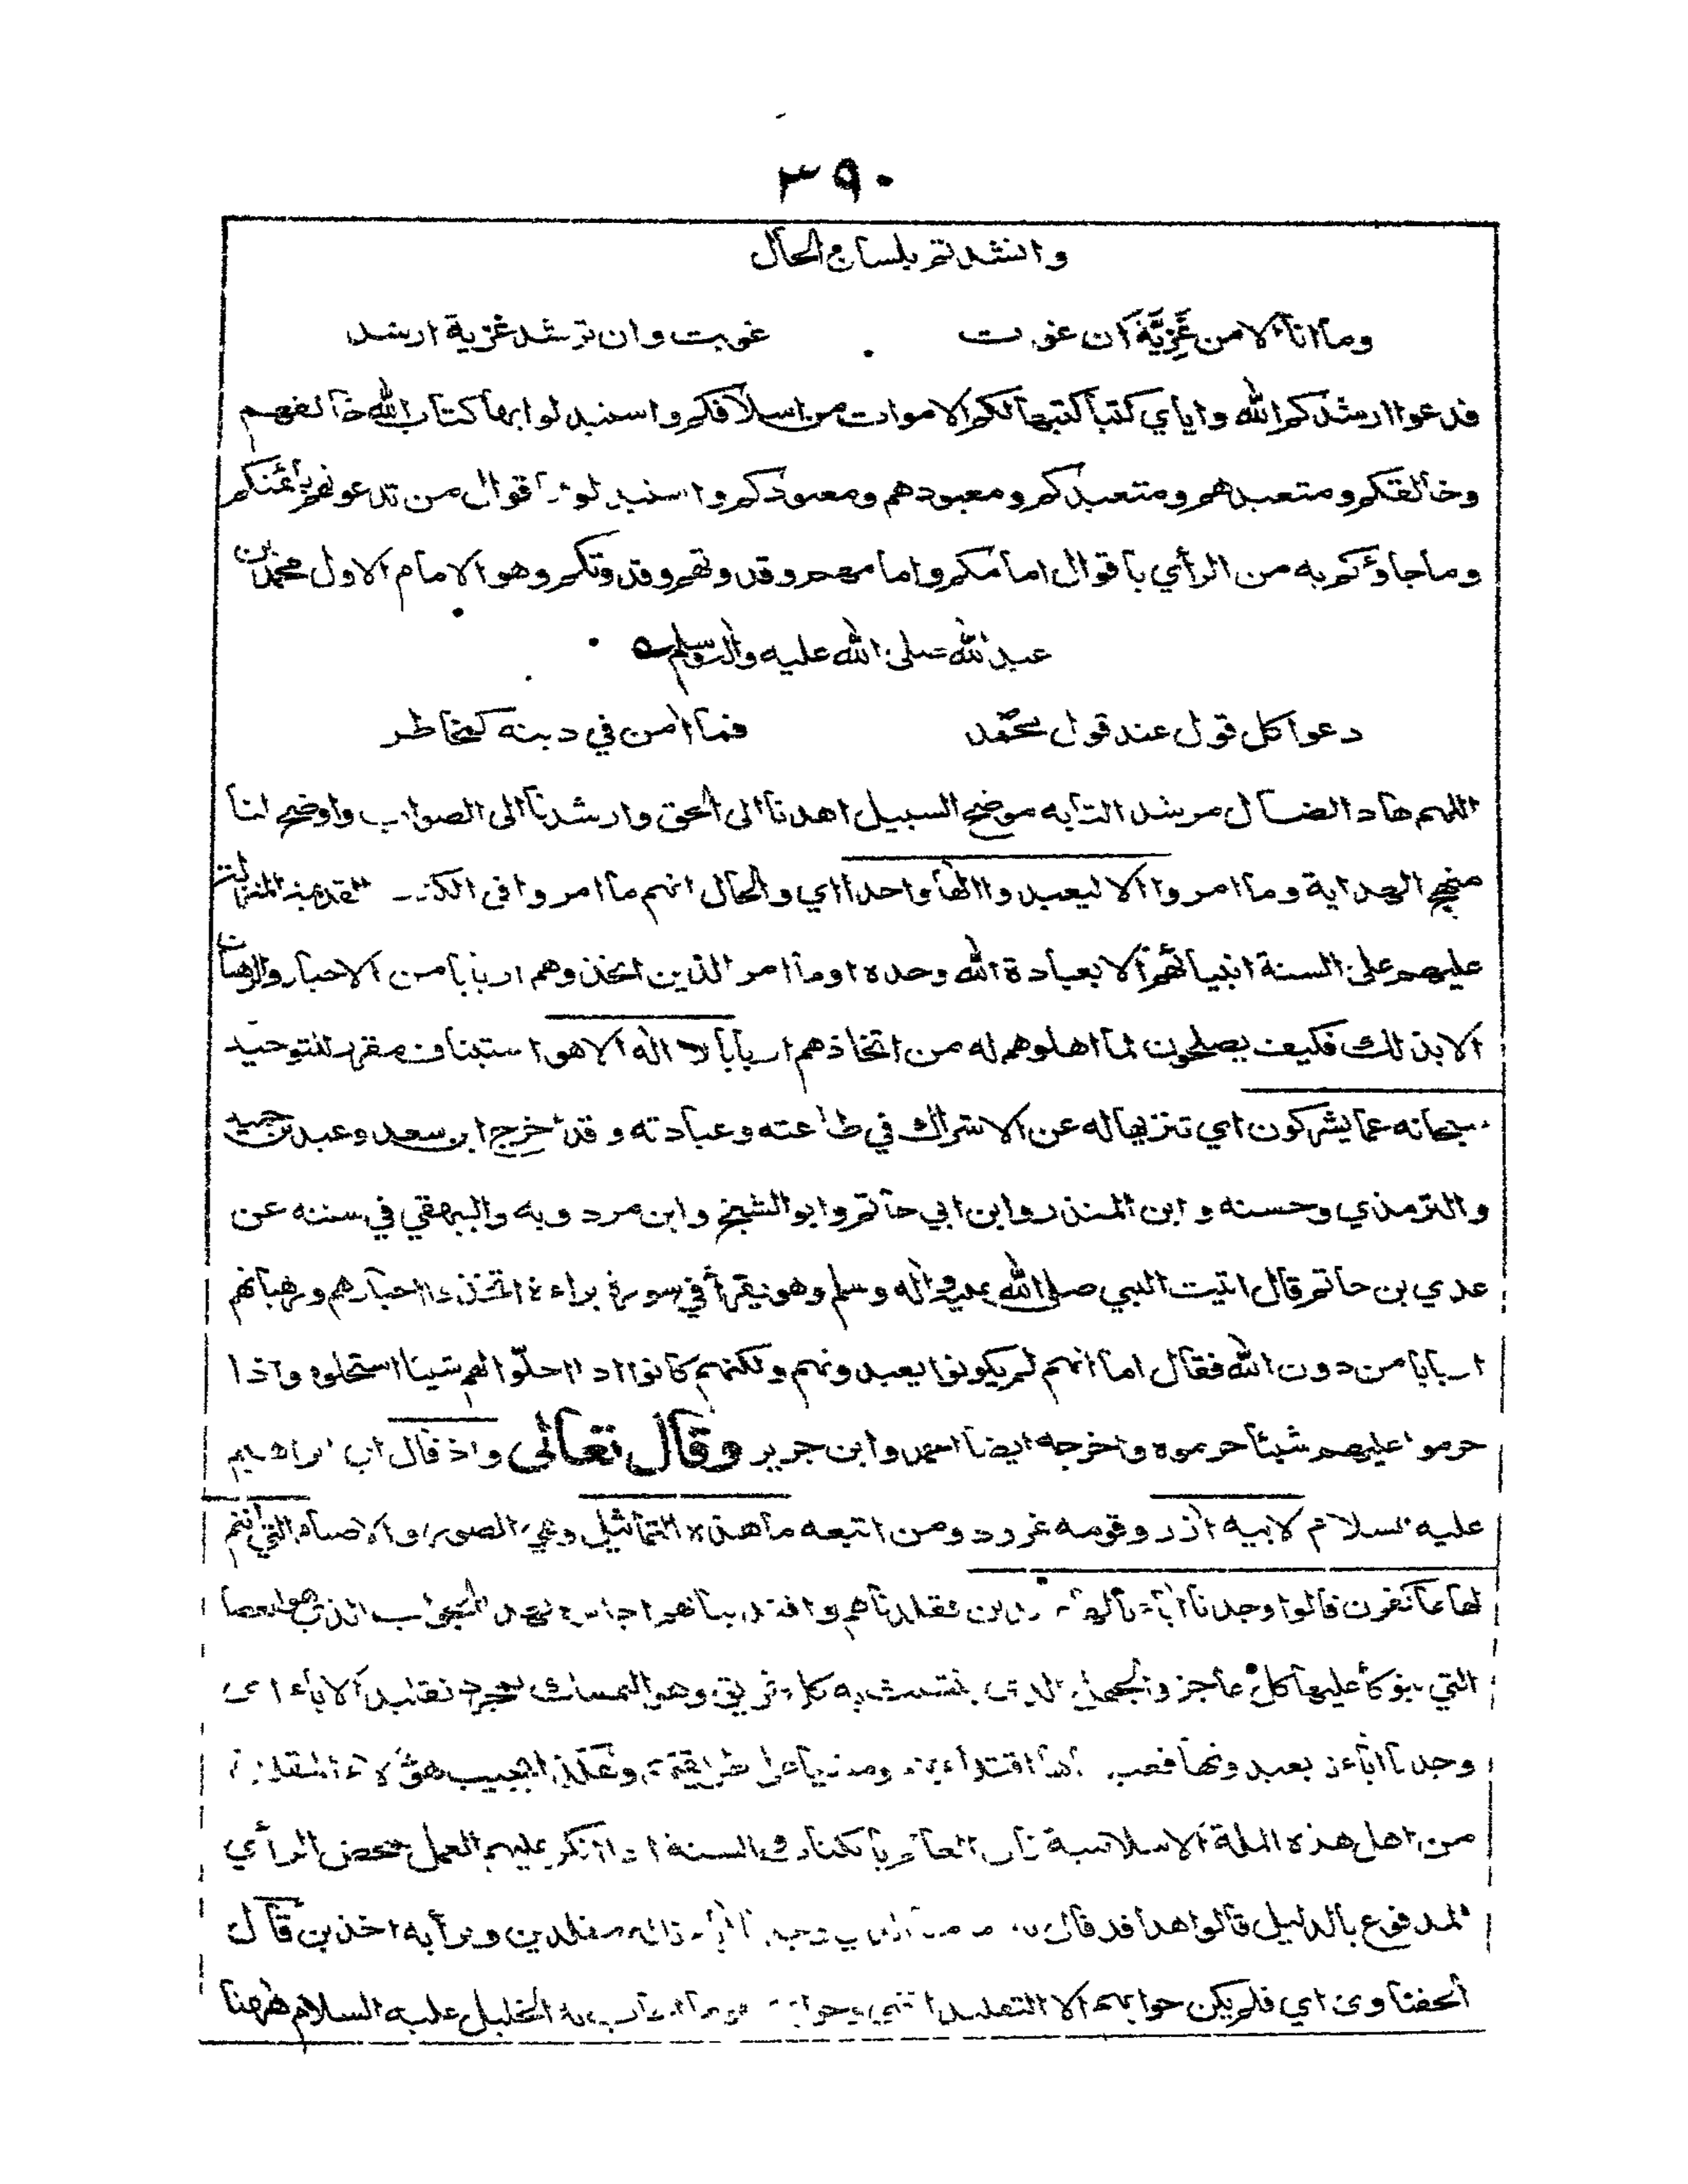 ٣٩٠
وانشدتم بلسان الحال
وما انا الا من غَزِيَّةَ ان غوت غويت وان ترشد غزية ارشد
فدعوا ارشدكم الله واياي كتبا كتبها لكم الاموات من اسلافكم واستبدلوا بها كتاب الله خالقهم
وخالقكم ومتعبدهم ومتعبدكم ومعبودهم ومعبودكم واستبدلوا باقوال من تدعونهم بائمتكم
وما جاؤكم به من الرأي باقوال امامكم وامامهم وقدوتهم وقدوتكم وهو الامام الاول محمد بن
عبد الله صلى الله عليه واله وسلم
دعوا كل قول عند قول محمد فما امن في دينه كمخاطر
اللهم هاد الضال مرشد التايه موضح السبيل اهدنا الى الحق وارشدنا الى الصواب واوضح لنا
منهج الهداية وما امروا الا ليعبدوا الها واحدا اي والحال انهم ما امروا في الكتب القديمة المنزلة
عليهم على السنة انبيائهم الا بعبادة الله وحده او ما امر الذين اتخذوهم اربابا من الاحبار والرهبان
الا بذلك فكيف يصلحون لما اهلوهم له من اتخاذهم اربابا لا اله الا هو استيناف مقرر للتوحيد
سبحانه عما يشركون اي تنزيها له عن الاشراك في طاعته وعبادته وقد اخرج ابن سعد وعبد بن حميد
والترمذي وحسنه وابن المنذر وابن ابي حاتم وابو الشيخ وابن مردويه والبيهقي في سننه عن
عدي بن حاتم قال اتيت النبي صلى الله عليه واله وسلم وهو يقرأ في سورة براءة اتخذوا احبارهم ورهبانهم
اربابا من دون الله فقال اما انهم لم يكونوا يعبدونهم ولكنهم كانوا اذا احلّوا لهم شيئا استحلوه واذا
حرموا عليهم شيئا حرموه واخرجه ايضا احمد وابن جرير وقال تعالى واذ قال ابراهيم
عليه السلام لابيه آزر وقومه نمرود ومن اتبعه ما هذه التماثيل وهي الصور والاصنام التي انتم
لها عاكفون قالوا وجدنا آباءنا لها عابدين فقلدناهم واقتدينا بهم اجابوه بهذا الجواب الذي هو العصا
التي يتوكأ عليها كل عاجز والحبل الذي يتشبث به كل غريق وهو التمسك بمجرد تقليد الاباء اي
وجدنا آباءنا يعبدونها فعبدناها اقتداء بهم ومشيا على طريقتهم وهكذا يجيب هؤلاء المقلدة
من اهل هذه الملة الاسلامية فان العالم بالكتاب والسنة اذا انكر عليهم العمل بمحض الرأي
المدفوع بالدليل قالوا هذا قد قال به مقلدين وبرأيه اخذين قال
الحفناوي اي فلم يكن جوابهم الا التقليد انتهى وجواب الخليل عليه السلام ههنا